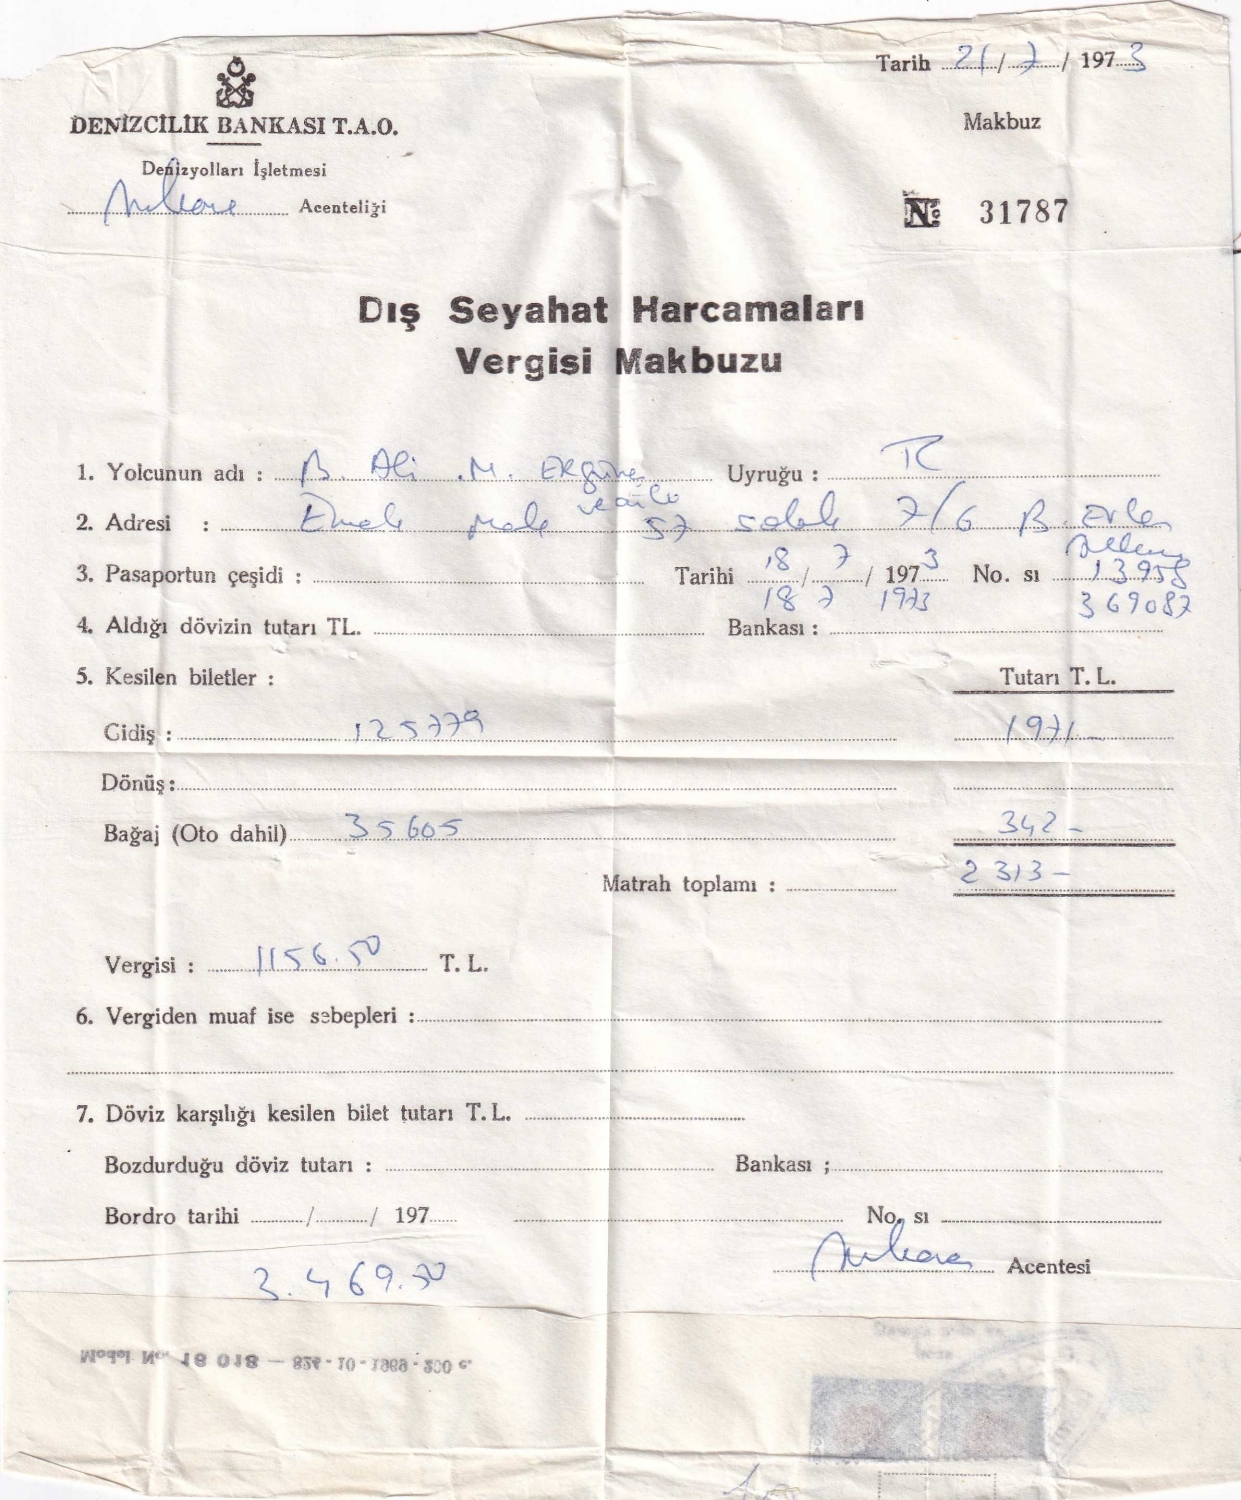 Tarih 21/7/1973
DENİZCİLİK BANKASI T.A.O.
Makbuz
Denizyolları İşletmesi
Ankara Acenteliği
No 31787
Dış Seyahat Harcamaları
Vergisi Makbuzu
1. Yolcunun adı : B. Ali .M. Uyruğu : TC
2. Adresi : Emek Mah 57 sokak 7/6 B. Evler
3. Pasaportun çeşidi : Tarihi 18/7/1973 No. sı 13958
18 7 1973 369087
4. Aldığı dövizin tutarı TL. Bankası :
5. Kesilen biletler : Tutarı T. L.
Gidiş : 125779 1971-
Dönüş :
Bağaj (Oto dahil) 35605 342-
Matrah toplamı : 2313-
Vergisi : 1156.50 T. L.
6. Vergiden muaf ise sebepleri :
7. Döviz karşılığı kesilen bilet tutarı T. L.
Bozdurduğu döviz tutarı : Bankası ;
Bordro tarihi / / 197 No. sı
Ankara Acentesi
3.469.50
Model No. 18 018 — 824 - 10 - 1969 - 200 c.